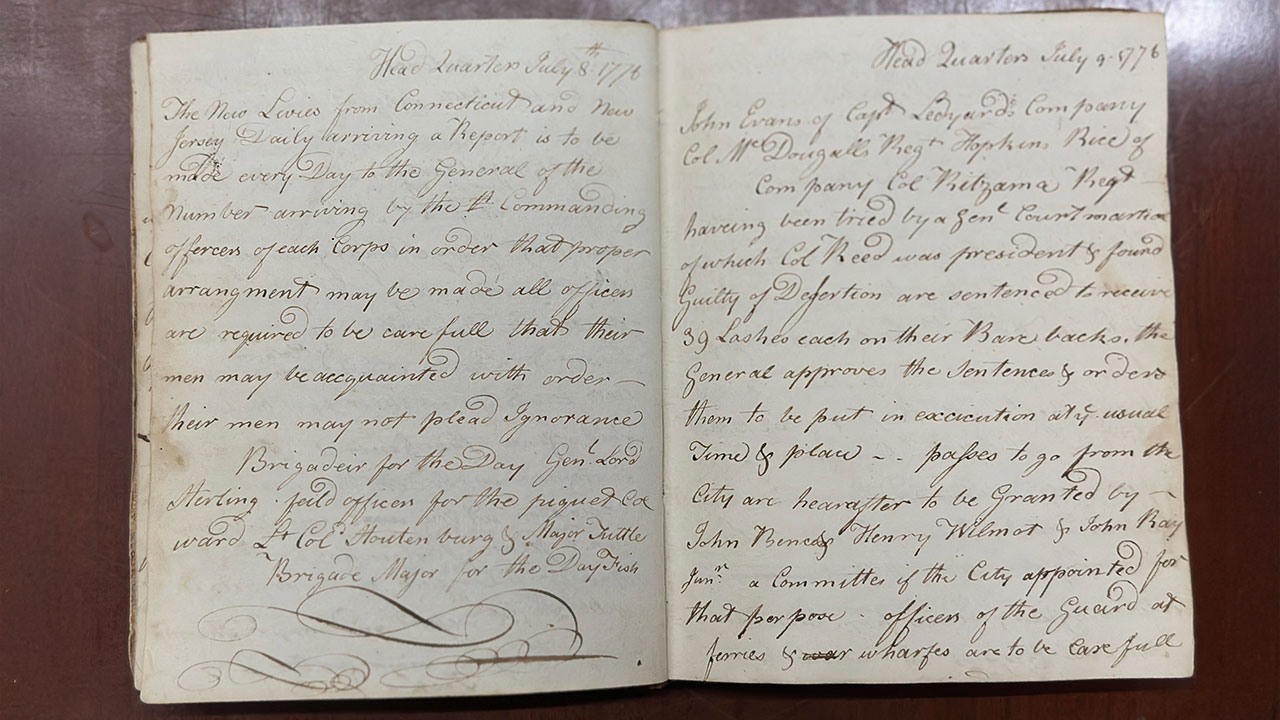 Head Quarters July 8th 1776
The New Livies from Connecticut and New
Jersey Daily arriving a Report is to be
made every Day to the General of the
Number arriving by the Commanding
offercers of each Corps in order that proper
arrangment may be made all officers
are required to be carefull that their
men may be accquainted with order —
their men may not plead Ignorance
Brigadeir for the Day Genl. Lord
Sterling. feild officers for the piquet Col
ward Lt Col. Houtenburg & Major Tuttle
Brigade Major for the Day Fish
Head Quarters July 9. 1776
John Evans of Capt Ledyards Company
Col McDougalls Regt Hopkins Rice of
Company Col Ritzama Regt
haveing been tried by a Genl Court martial
of which Col Reed was president & found
Guilty of Desertion are sentenced to receive
39 Lashes each on their Bare backs. the
General approves the Sentences & orders
them to be put in excicution at ye usual
Time & place - . passes to go from the
City are hearafter to be Granted by —
John Henry Wilmot & John Ray
Junr. a Committee of the City appointed for
that porpose - officers of the Guard at
ferries & wharfes are to be Care full